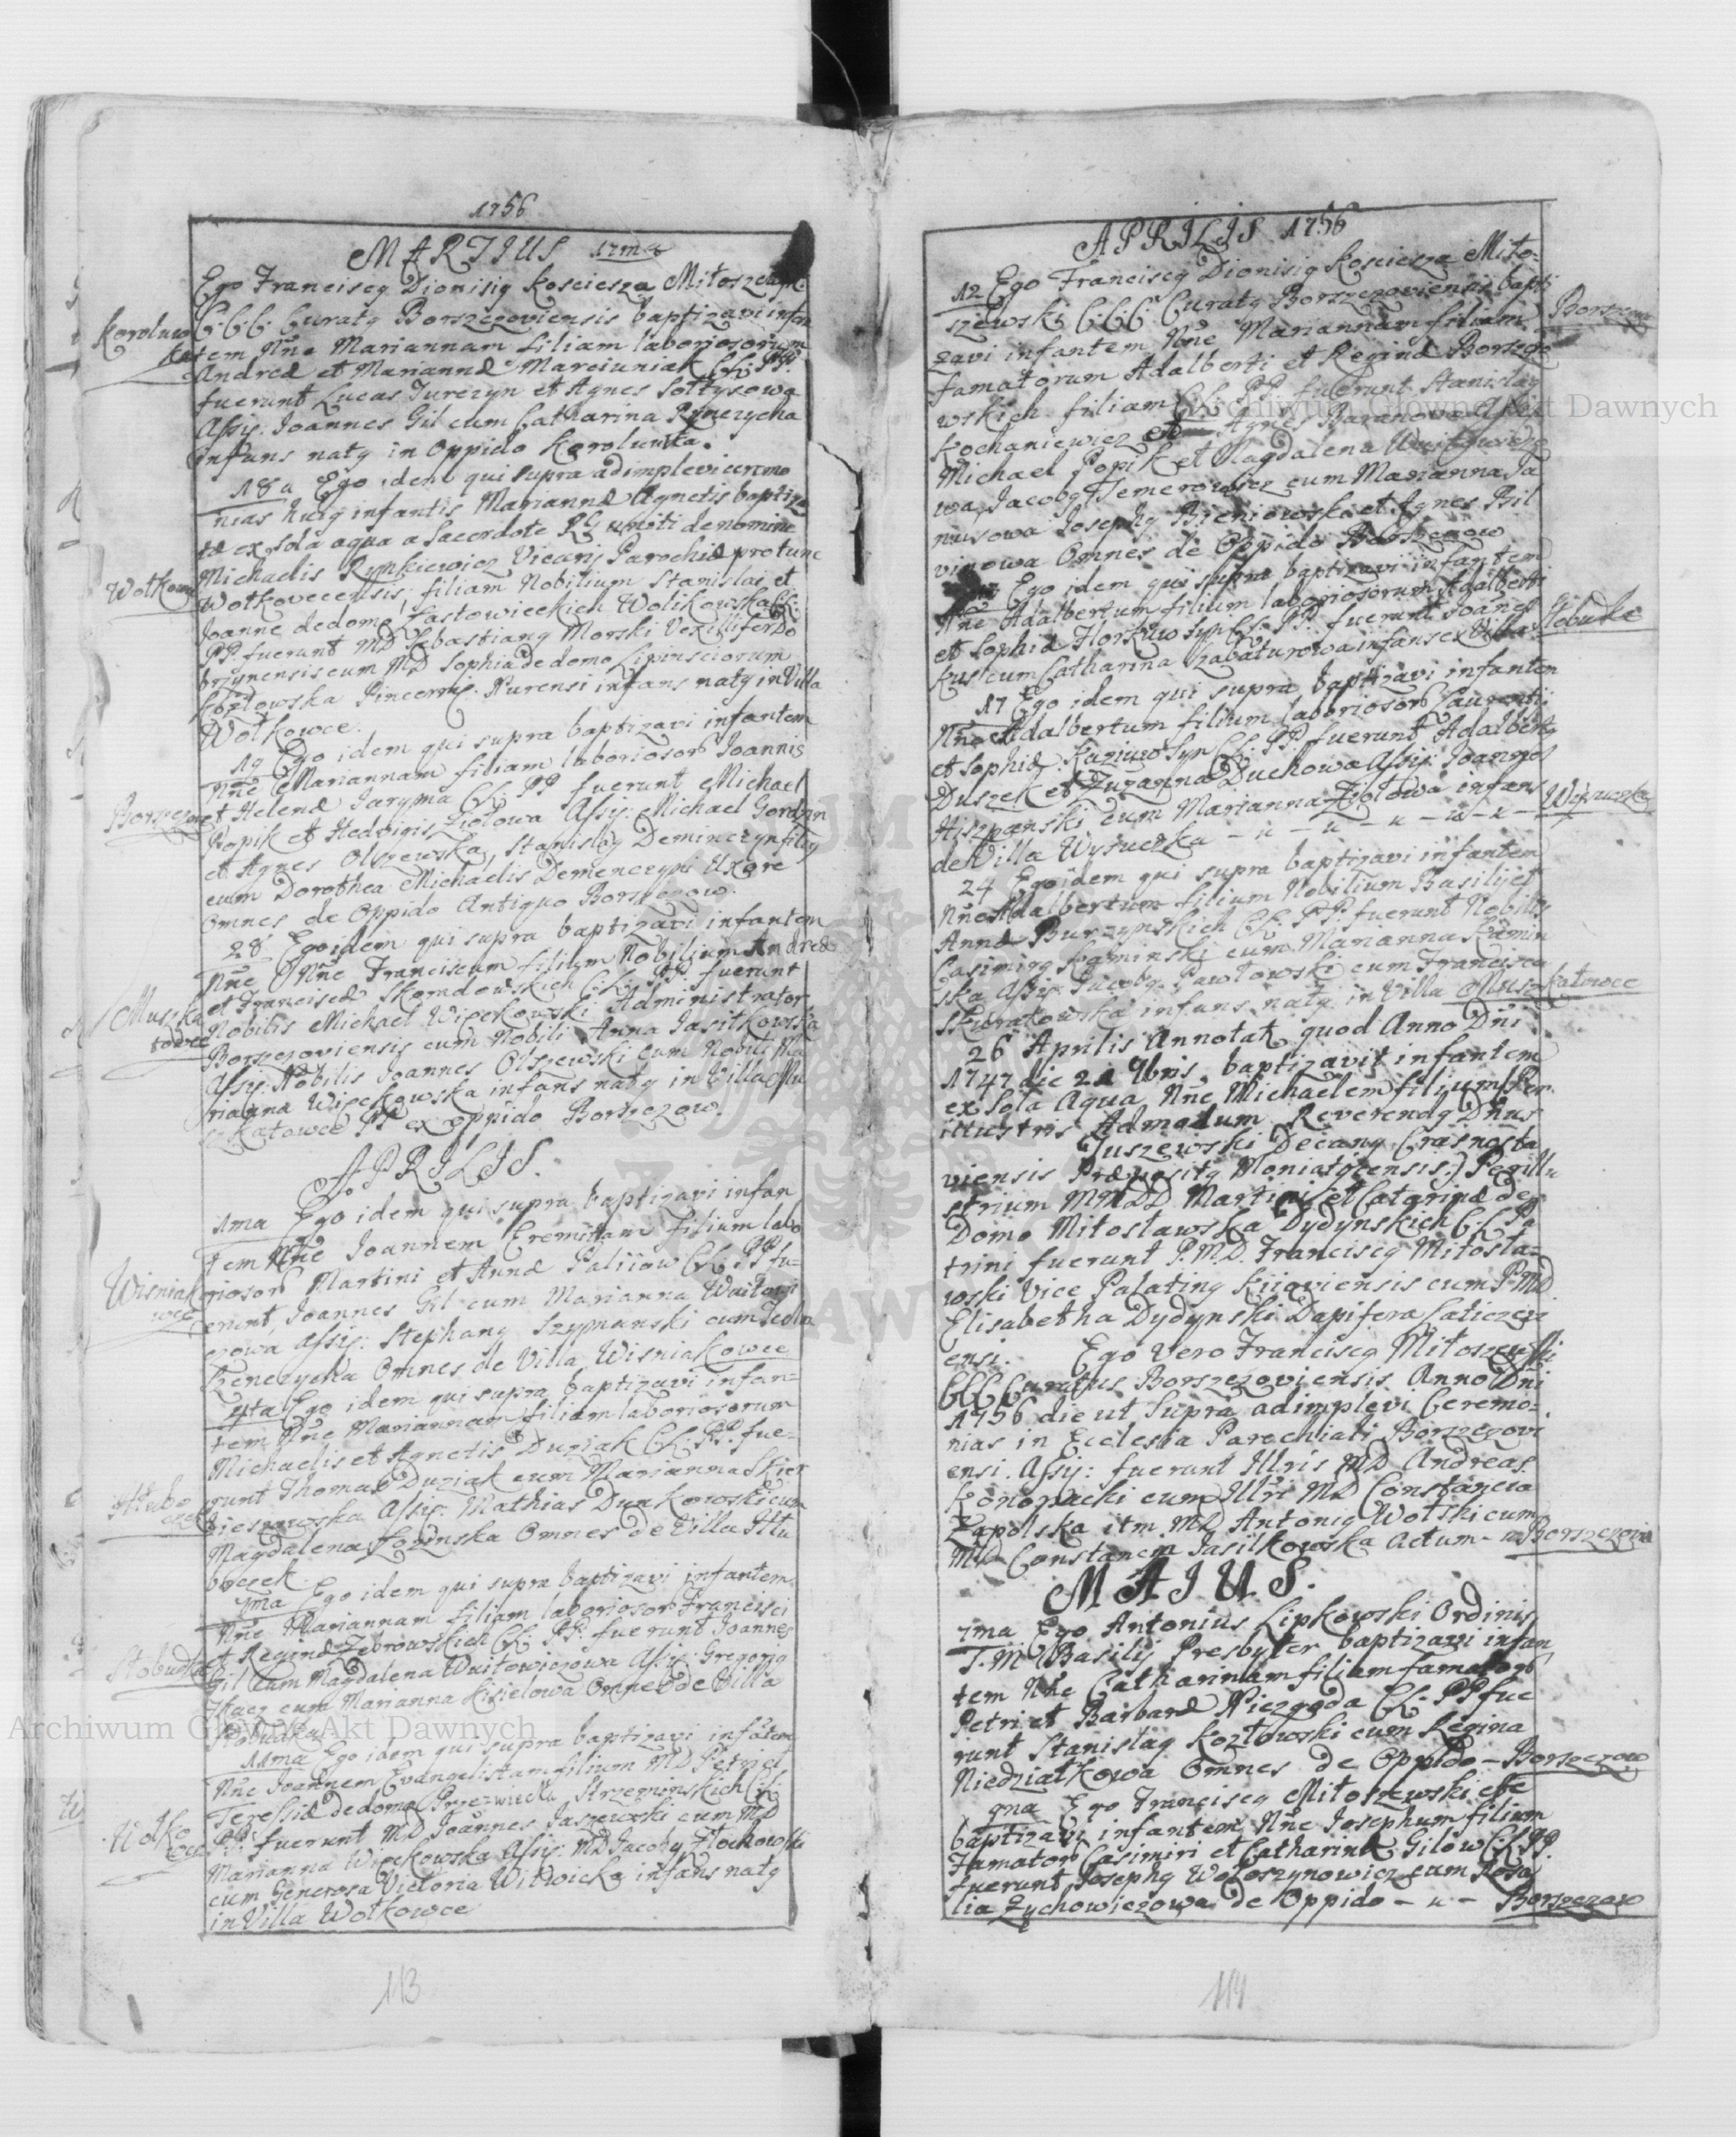 1756
MARTIUS 17ma
Ego Franciscq Dionisiq Kosciesza Miłoszewski
C:C:C: Curatq Borszczoviensis baptizavi infan
Koroluw
ka
tem Nñe Mariannam filiam laboriosorum
Andreæ et Mariannæ Marciuniak CL: PP:
fuerunt Lucas Jurczyn et Agnes Sołtysowa
Assis: Joannes Gil cum Catharina Rymczycha
Infans natq in Oppido Korolumka.
18a Ego idem qui supra adimplevi ceremo
nias huiq infantis Mariannæ Agnetis baptiza
tæ ex sola aqua a Sacerdote RG uniti de nomine
Michaelis Rynkiewicz Vicarij Parochiæ pro tunc
Wołkow
Wołkovecensis, filiam Nobilium Stanislai et
Joanne de domo Łastowieckich Wolikowska CL:
PP. fuerunt MD Sebastianq Morski Vexillifer Do
brzynensis cum MD Sophia de domo Lipinsciorum
Kozłowska Pincernis Nurensi infans natq in Villa
Wołkowce.
19 Ego idem qui supra baptizavi infantem
Nñe Mariannam filiam laboriosor Joannis
Borszczow
et Helenæ Jaryma CL: PP fuerunt Michael
Popik et Hedvigis Ziołowa Assis: Michael Gordzyn
et Agnes Olszewska, Stanislaq Deminczyn filiq
cum Dorothea Michaelis Demenczyni Uxore
Omnes de Oppido Antiquo Borszczow.
28 Ego idem qui supra baptizavi infantem
Nñe Nñe Franciscum filium Nobilium Andreæ
et Franciscæ Skoradowskich CL: PP fuerunt
Muszka
towce
Nobilis Michael Wipckowski Administrator
Borszczoviensis cum Nobili Anna Jasilkowska
Assis: Nobilis Joannes Olszewski cum Nobili Ma
rianna Wipckowska infans natq in Villa Mu
szkatowce PP ex oppido Borszczow.
APRILIS.
1ma Ego idem qui supra baptizavi infan
tem Nñe Joannem Eremitam filium labo
Wisniak
owce
riosor Martini et Annæ Paliiow CL PP fu-
erunt, Joannes Gil cum Marianna Wuitowi
czowa Assis: Stephanq Szypnanski cum Tecla
Zenczycka Omnes de Villa Wisniakowce
4ta Ego idem qui supra baptizavi infan=
tem Nñe Mariannam filiam laboriosorum
Michaelis et Agnetis Duziak CL PP: fue-
runt Thomas Duziak cum Marianna Skier
czeszowska Assis: Mathias Dunkowski cum
Magdalena Łozinska Omnes de Villa Hłu
boczek
7ma Ego idem qui supra baptizavi infantem
Nñe Mariannam filiam laboriosor Francisci
et Reginæ Zebrowskich CL PP: fuerunt Joannes
Stobudka
Gil cum Magdalena Wuitowiczowa Assis: Gregoriq
Tkacz cum Marianna Kisielowa Omnes de Villa
Stobudka
11ma Ego idem qui supra baptizavi infãtem
Nñe Joannem Evangelistam filium MD Petri et
Teressiæ de domo Przezwiecka Strzeznowskich CL:
Wołko
wce
PP: fuerunt MD Joannes Jaszewski cum MD
Marianna Wipckowska Assis: MD Jacobq Złochowski
cum Generosa Victoria Witwicka infans natq
in Villa Wołkowce
113
APRILIS 1756
12 Ego Franciscq Dionisiq Kosciesza Miło=
szewski C:C:C: Curatq Borszczoviensis bapti
Borszczow
zavi infantem Nñe Mariannam filiam
famatorum Adalberti et Reginæ Borszczo
wskich filiam CL PP fuerunt Stanislaq
Kochaniewicz et Agnes Baranowa Assis
Michael Popik et Magdalena Wuitowiczo
wa, Jacobq Temerowicz cum Marianna Ja
nusowa Josephq Breniowski et Agnes Bil
vinowa Omnes de Oppido Borszczow
Ego idem qui supra baptizavi infantem
Nñe Adalbertum filium laboriosorum Adalberti
et Sophiæ Florkuw Syn CL: PP: fuerunt Joãnes
Kus cum Catharina Szabaturowa infans ex Villa Stobudka
17 Ego idem qui supra baptizavi infantem
Nñe Adalbertum filium laboriosor Laurentii
et Sophiæ Kuziuw Syn CL: PP: fuerunt Adalbertq
Duszek et Zuzanna Duchowa Assis: Joannes
Hiszpanski cum Marianna Ziołowa infans
Wysuczka
de Villa Wysuczka - u - u - u - u - u -
24 Ego idem qui supra baptizavi infantem
Nñe Adalbertum filium Nobilium Basilij et
Annæ Burzynskich CL: PP: fuerunt Nobilis
Casimirq Kaminski cum Marianna Kamin
ska Assis: Jacobq Pawłowski cum Francisca
Skuratowska infans natq in Villa Muszkatowce
26 Aprilis Annotatq quod Anno Dñi
1747 die 21 9bris baptizavit infantem
ex sola Aqua Nñe Michaelem filium (Per
illustris Admodum Reverendq Dñus
Juszewski Decanq Crasnosta
viensis Præpositq Moniatycensis:) Perillu
strium MMDD Martini et Catarinæ de
Domo Miłosławska Dydynskich C:L Pa
trini fuerunt P.M.D. Franciscq Miłosła-
wski Vice Palatinq Kiioviensis cum P:MD
Elisabetha Dydynski Dapifera Laticzew
ensi. Ego vero Franciscq Miłoszewski
CCC Curatus Borszczoviensis Anno Dñi
1756 die ut supra adimplevi Ceremo=
nias in Ecclesia Parochiali Borszczovi
ensi. Assis: fuerunt Illris MD Andreas
Konopacki cum Illri MD Constancia
Zapolska itm MD Antoniq Wolski cum
MD Constancia Jasilkowska Actum - u Borszczovia
MAIUS.
1ma Ego Antonius Lipkowski Ordinis
S. M Basilij Presbyter baptizavi infan
tem Nñe Catharinam filiam famator
Petri et Barbaræ Niezgoda CL: PP fue
runt Stanislaq Kozłowski cum Regina
Niedziałkowa Omnes de Oppido - Borszczow
9na Ego Franciscq Miłoszewski etc
baptizavi infantem Nñe Josephum filium
Famator Casimiri et Catharinæ Gilow CL PP.
fuerunt Josephq Wołoszynowicz cum Rosa
lia Zychowiczowa de Oppido - u - Borszczow
114
Archiwum Główne Akt Dawnych
Archiwum Główne Akt Dawnych